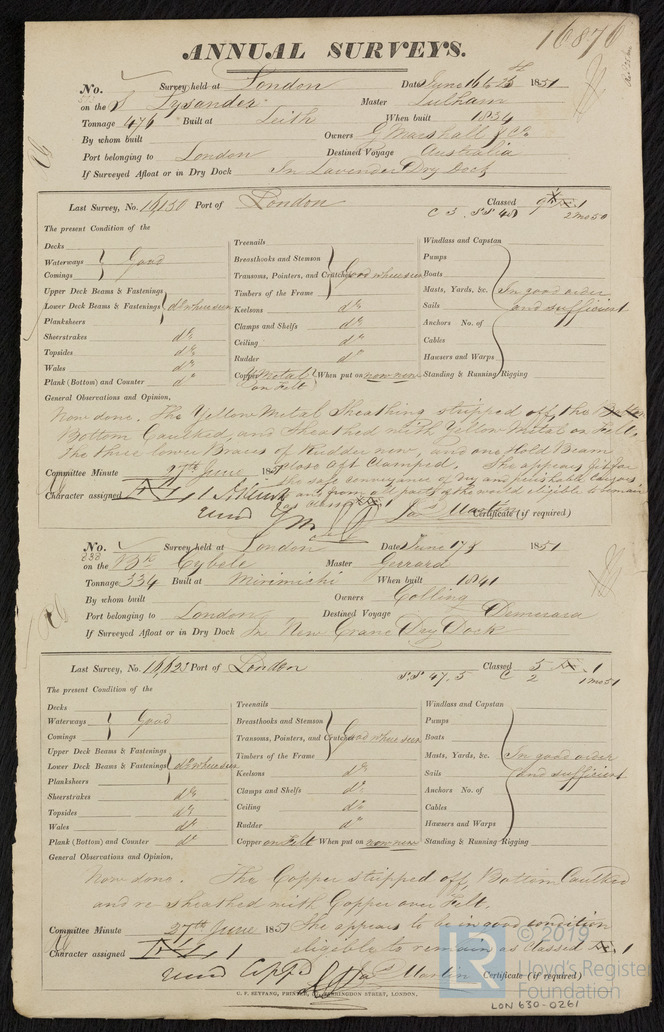 16876
ANNUAL SURVEYS.
No. Survey held at London Date June 16 & 25th 1851
on the S Lysander Master Lulham
Tonnage 476 Built at Leith When built 1834
By whom built Owners G Marshall & Co
Port belonging to London Destined Voyage Australia
If Surveyed Afloat or in Dry Dock In Lavender Dry Dock
Last Survey, No. 16,130 Port of London Classed
The present Condition of the
Decks
Waterways Good
Comings
Upper Deck Beams & Fastenings
Lower Deck Beams & Fastenings do where seen
Planksheers
Sheerstrakes do
Topsides do
Wales do
Plank (Bottom) and Counter do
Treenails
Breasthooks and Stemson
Transoms, Pointers, and Crutches Good where seen
Timbers of the Frame
Keelsons do
Clamps and Shelfs do
Ceiling do
Rudder do
Copper Y Metal on Felt When put on now new
Windlass and Capstan
Pumps
Boats
Masts, Yards, &c. In good order
Sails and sufficient
Anchors No. of
Cables
Hawsers and Warps
Standing & Running Rigging
General Observations and Opinion,
Now done. The Yellow Metal Sheathing stripped off, the
Bottom Caulked, and Sheathed with Yellow Metal on Felt,
the three lower Braces of Rudder new, and one Hold Beam
close aft Clamped. She appears fit for
the safe conveyance of dry and perishable cargoes,
and from all parts of the world eligible to remain
as class
Committee Minute 27th June 1851
Character assigned
Jas Martin
Certificate (if required)
No. Survey held at London Date June 17 & 1851
on the Bk Cybele Master Gerrard
Tonnage 334 Built at Mirimichi When built 1841
By whom built Owners Colling
Port belonging to London Destined Voyage Demerara
If Surveyed Afloat or in Dry Dock In New Crane Dry Dock
Last Survey, No. 16,623 Port of London Classed
The present Condition of the
Decks
Waterways Good
Comings
Upper Deck Beams & Fastenings
Lower Deck Beams & Fastenings do where seen
Planksheers
Sheerstrakes do
Topsides do
Wales do
Plank (Bottom) and Counter do
Treenails
Breasthooks and Stemson
Transoms, Pointers, and Crutches Good where seen
Timbers of the Frame
Keelsons do
Clamps and Shelfs do
Ceiling do
Rudder do
Copper on Felt When put on now new
Windlass and Capstan
Pumps
Boats
Masts, Yards, &c. In good order
Sails and sufficient
Anchors No. of
Cables
Hawsers and Warps
Standing & Running Rigging
General Observations and Opinion,
Now done. The Copper stripped off, Bottom Caulked
and re-sheathed with Copper over Felt.
She appears to be in good condition
eligible to remain as classed
Committee Minute 27th June 1851
Character assigned
Jas Martin
Certificate (if required)
G. F. SEYFANG, PRINTER, FARRINGDON STREET, LONDON.
LR
© 2019
Lloyd's Register
Foundation
LON 630-0261